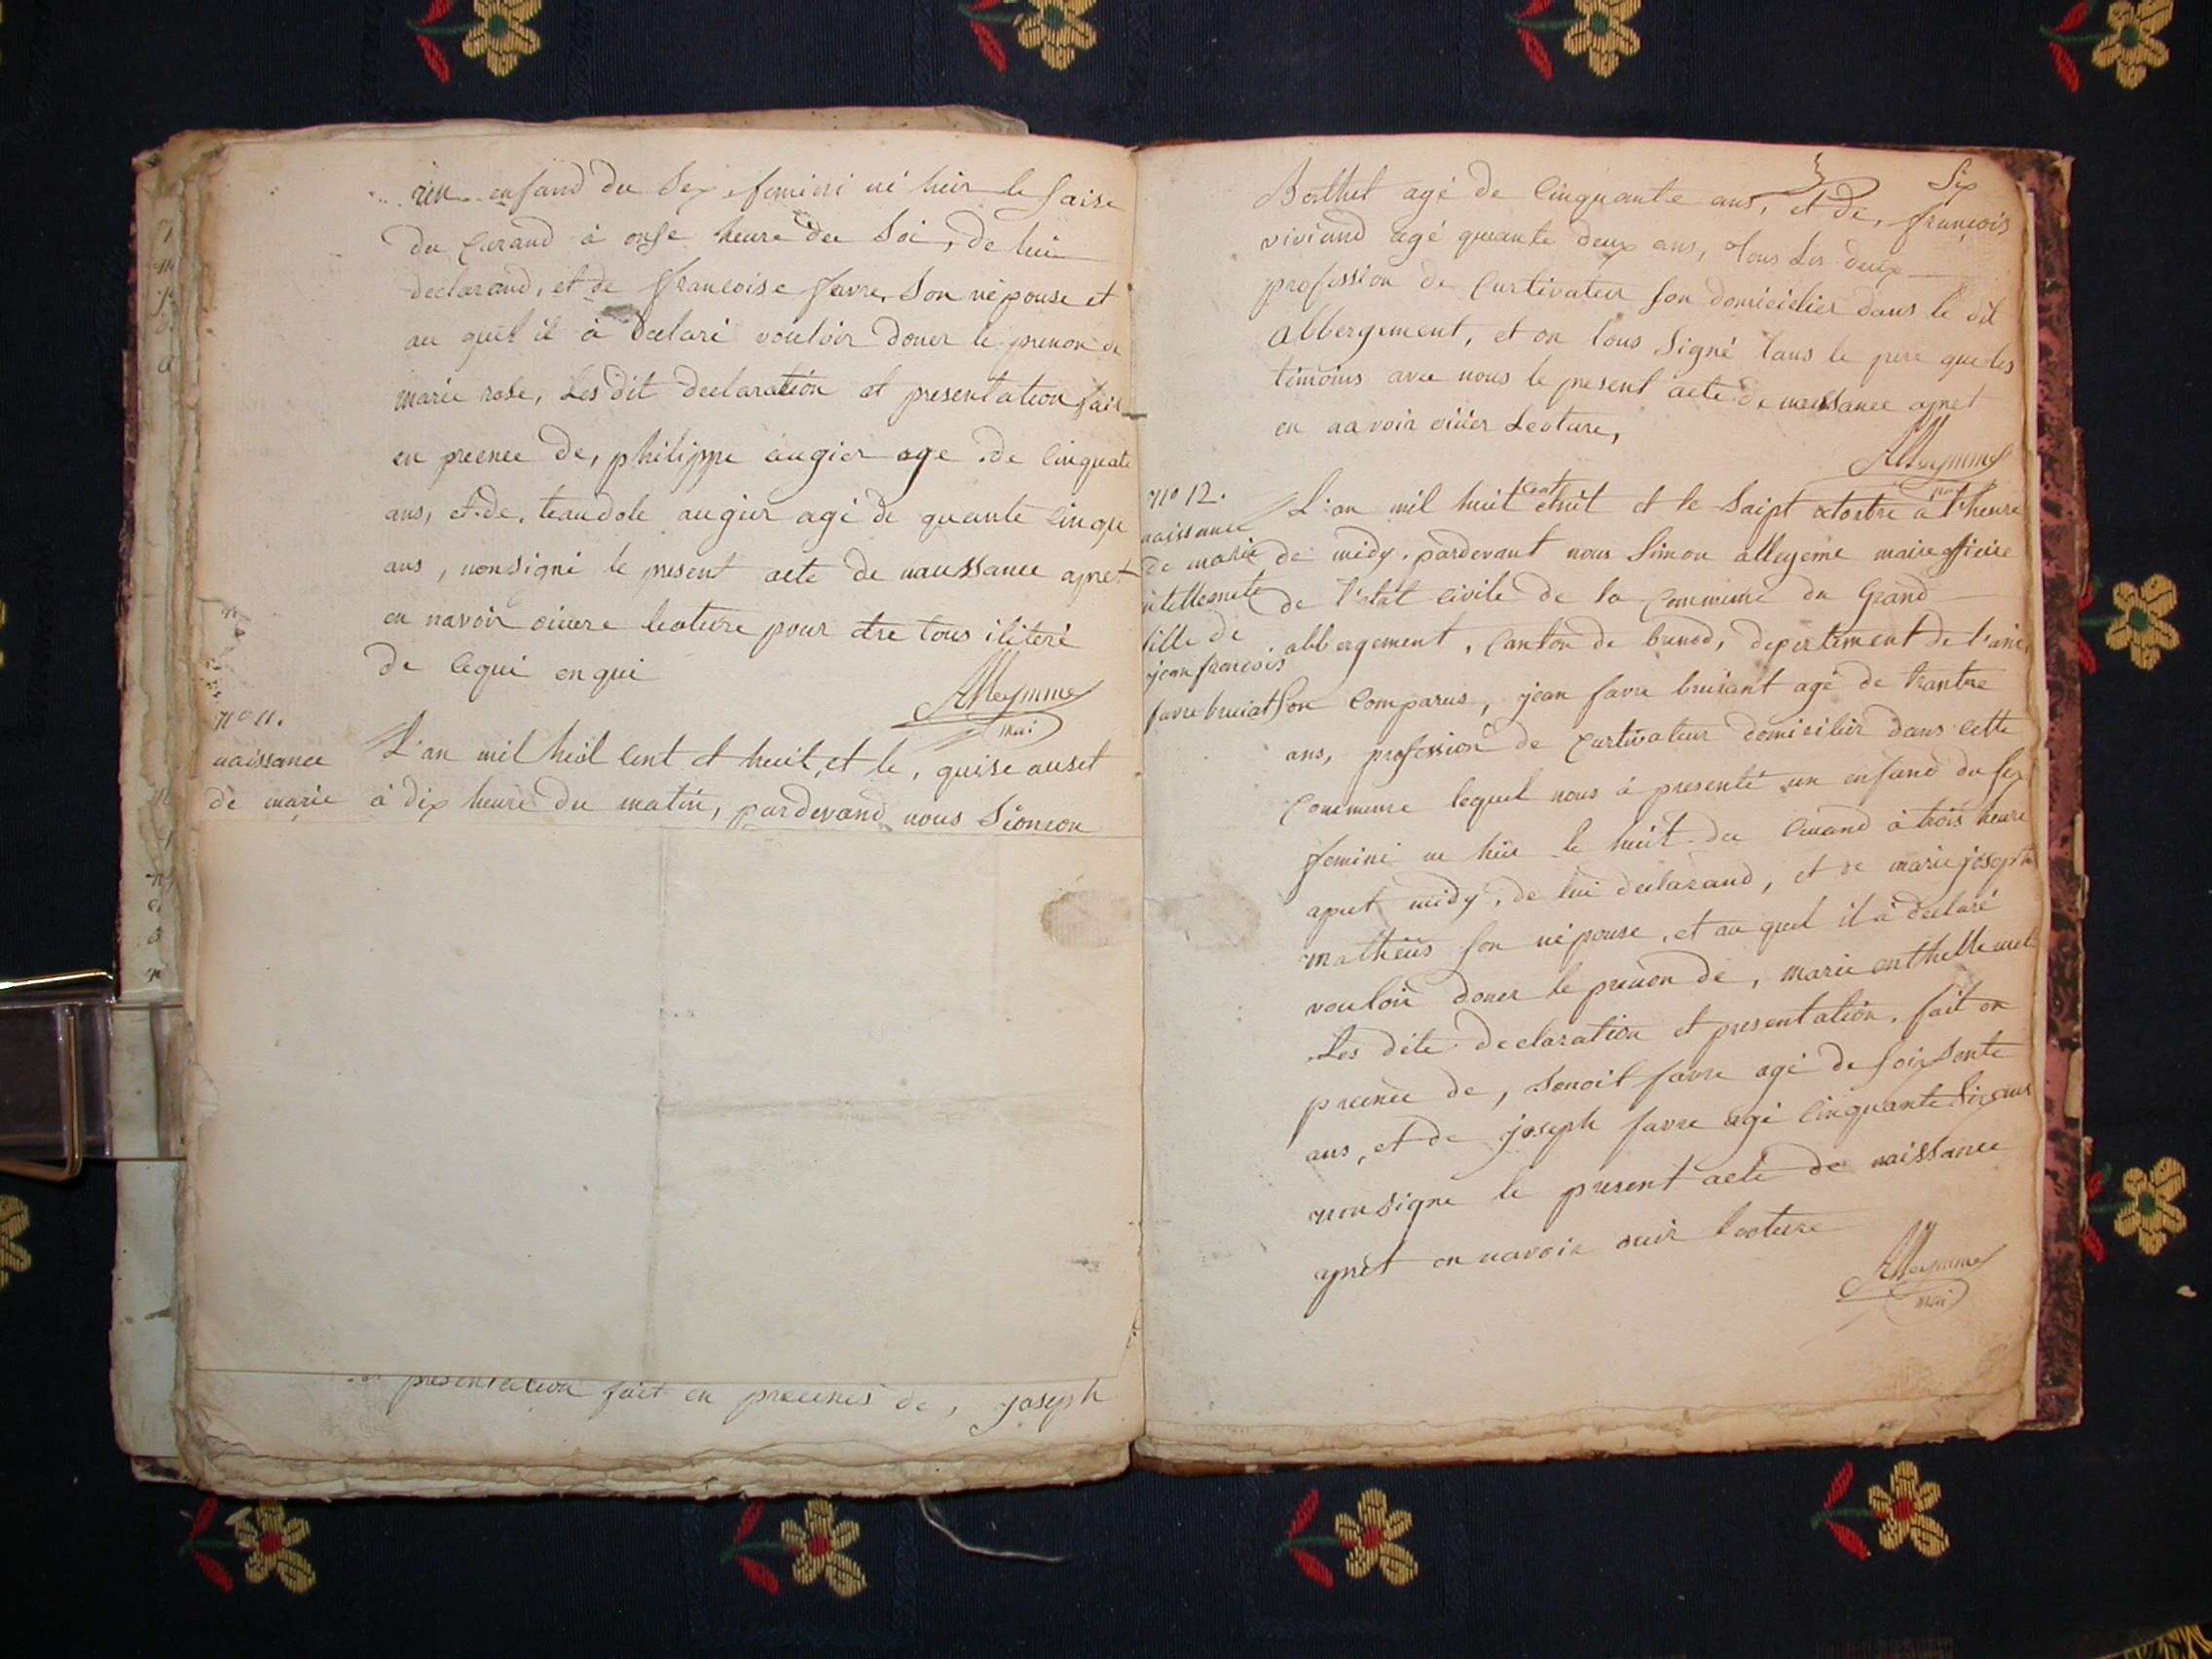 un enfand du Sex femini né hier le saise
du Curand à onse heure du Soi, de lui
declarand, et de francoise favre, Son népouse et
au quel il à declaré vouloir doner le prenon de
marie rose, Les dit declaration et presentation fait
en precnce de, philippe augier age de cinquate
ans, et de, teaudole augier agé de quante cinque
ans, nonsigné le present acte de naussance apret
en navoir ouiere leoture pour etre tous iliteré
de cequi enqui
AlleymmeMai
no 11.
naissance
de marie
L'an mil huit cent et huit, et le, quise auset
à dix heure du matin, pardevand nous Siomon
presentation fait en precnes de, joseph
Six
Berthet agé de Cinquante ans, et de, françois
viviand agé quante deux ans, tous Les deux
profession de Curtivateur son domicilier dans le dit
abbergement, et on tous Signé tans le pere que les
témoins avec nous le present acte de naissance apret
en aavoir ouier Leoture,
Alleymme
no 12.
naissance
de marie
fille de
jean francois
favre bruiat
L'an mil huit cent et huit et le Saipt octobre à l'heure
de midy, pardevant nous Simon alleyeme maire officire
de l'état civile de la Commune du Grand
abbergement, Canton de brenod, depertement de l'ain,
Son Comparus, jean favre bruiant agé de trantre
ans, profession de Curtivateur domicilier dans cette
Commune lequel nous à presenté un enfand du Sex
femini ne hier le huit du Curand à trois heure
apret midy, de lui declarand, et de marie joseph
matheus son népouse, et au quel il à declaré
vouloir doner le prenon de, marie
Les dite declaration et presentation, fait en
precnce de, Benoit favre agé de soixsonte
ans, et de joseph favre agé Cinquante Six ans
nonsigne le present acte de naissance
apret en navoir ouir Leoture
Alleymme
Mai